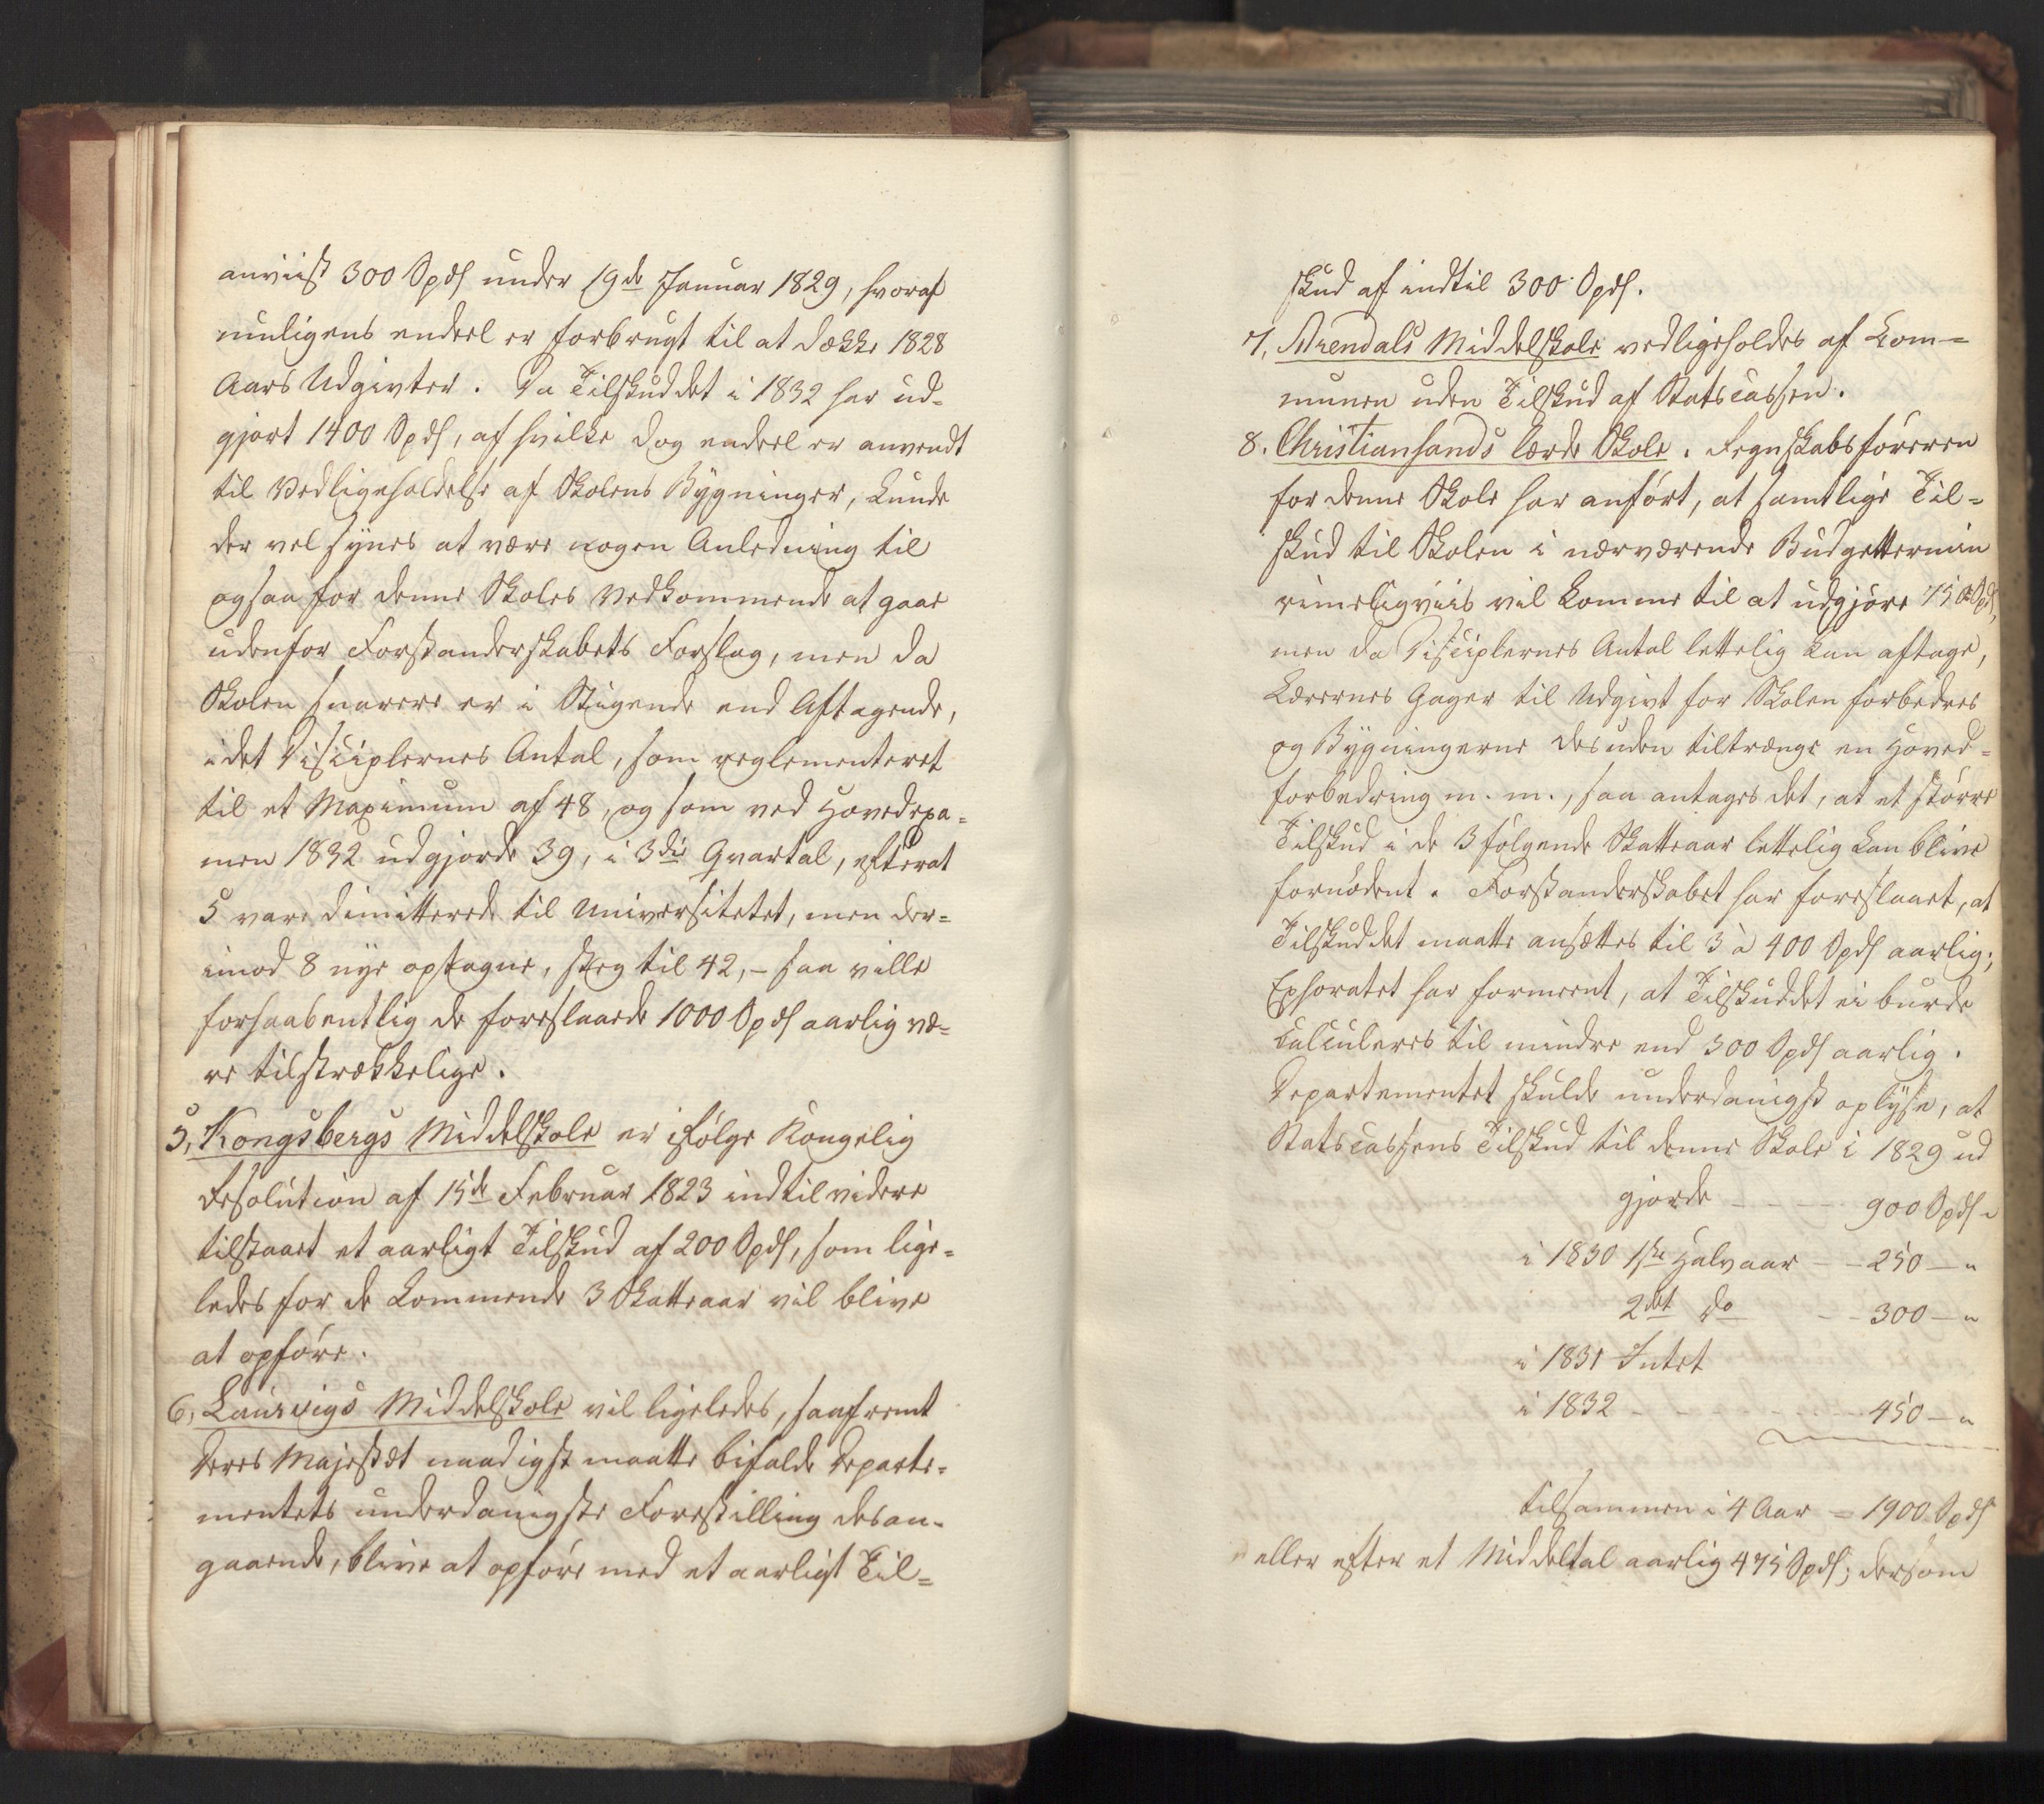 anviist 300 Spds under 19de Januar 1829, hvoraf
muligens endeel er forbrugt til at dække 1828
Aars Udgivter. Da Tilskuddet i 1832 har ud-
gjort 1400 Spds, af hvilke dog endeel er anvendt
til Vedligeholdelse af Skolens Bygninger, kunde
der vel synes at være nogen Anledning til
ogsaa for denne Skoles Vedkommende at gaae
udenfor Forstanderskabets Forslag, men da
Skolen snarere er i Stigende end Aftagende,
idet Disciplernes Antal, som reglementeret
til et Maximum af 48, og som ved Hovedexa-
men 1832 udgjorde 39, i 3die Qvartal, efterat
5 vare dimitterede til Universitetet, men der-
imod 8 nye optagne, steg til 42, - saa ville
forhaabentlig de foreslaaede 1000 Spds aarlig væ-
re tilstrækkelige.
5, Kongsbergs Middelskole er ifølge Kongelig
Resolution af 15de Februar 1823 indtil videre
tilstaaet et aarligt Tilskud af 200 Spds, som lige-
ledes for de kommende 3 Skatteaar vil blive
at opføre.
6, Laurvigs Middelskole vil ligeledes, saafremt
Deres Majestæt naadigst maatte bifalde Departe-
mentets underdanigste Forestilling desan-
gaaende, blive at opføre med et aarligt Til-
skud af indtil 300 Spds.
7, Arendals Middelskole vedligeholdes af Kom-
munen uden Tilskud af Statscassen.
8. Christiansands lærde Skole. Regnskabsføreren
for denne Skole har anført, at samtlige Til-
skud til Skolen i nærværende Budgettermin
rimeligviis vil komme til at udgjøre 750 Spds,
men da Disciplernes Antal lettelig kan aftage,
Lærernes Gager til Udgivt for Skolen forbedres
og Bygningerne desuden tiltrænge en Hoved-
forbedring m. m., saa antages det, at et større
Tilskud i de 3 følgende Skatteaar lettelig kan blive
fornødent. Forstanderskabet har foreslaaet, at
Tilskuddet maatte ansættes til 3 à 400 Spds aarlig;
Ephoratet har formeent, at Tilskuddet ei burde
calculeres til mindre end 500 Spds aarlig.
Departementet skulde underdanigst oplyse, at
Statscassens Tilskud til denne Skole i 1829 ud
gjorde - - - - 900 Spds "
i 1830 1ste Halvaar - - 250 - "
2det do - - 300 - "
i 1831 Intet
i 1832 - - - - - - - 450 - "
tilsammen i 4 Aar = 1900 Spds
eller efter et Middeltal aarlig 475 Spds; dersom